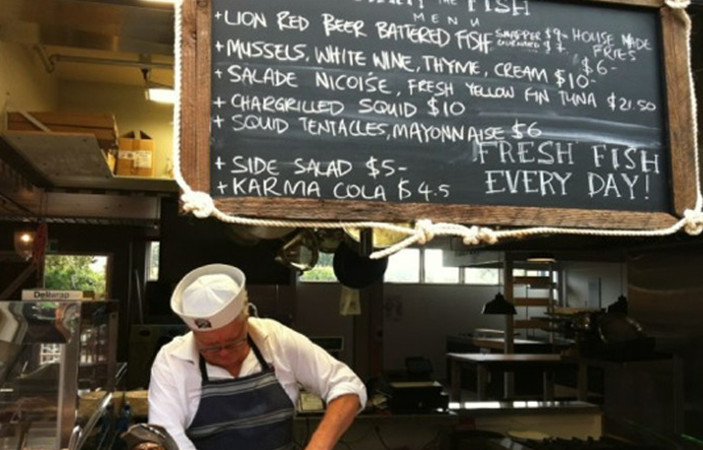 FISH
MENU
+ LION RED BEER BATTERED FISH $9- HOUSE MADE FRIES $6-
+ MUSSELS, WHITE WINE, THYME, CREAM $10-
+ SALADE NICOISE, FRESH YELLOW FIN TUNA $21.50
+ CHARGRILLED SQUID $10
+ SQUID TENTACLES, MAYONNAISE $6
FRESH FISH
EVERY DAY!
+ SIDE SALAD $5-
+ KARMA COLA $4.5
Deliwrap